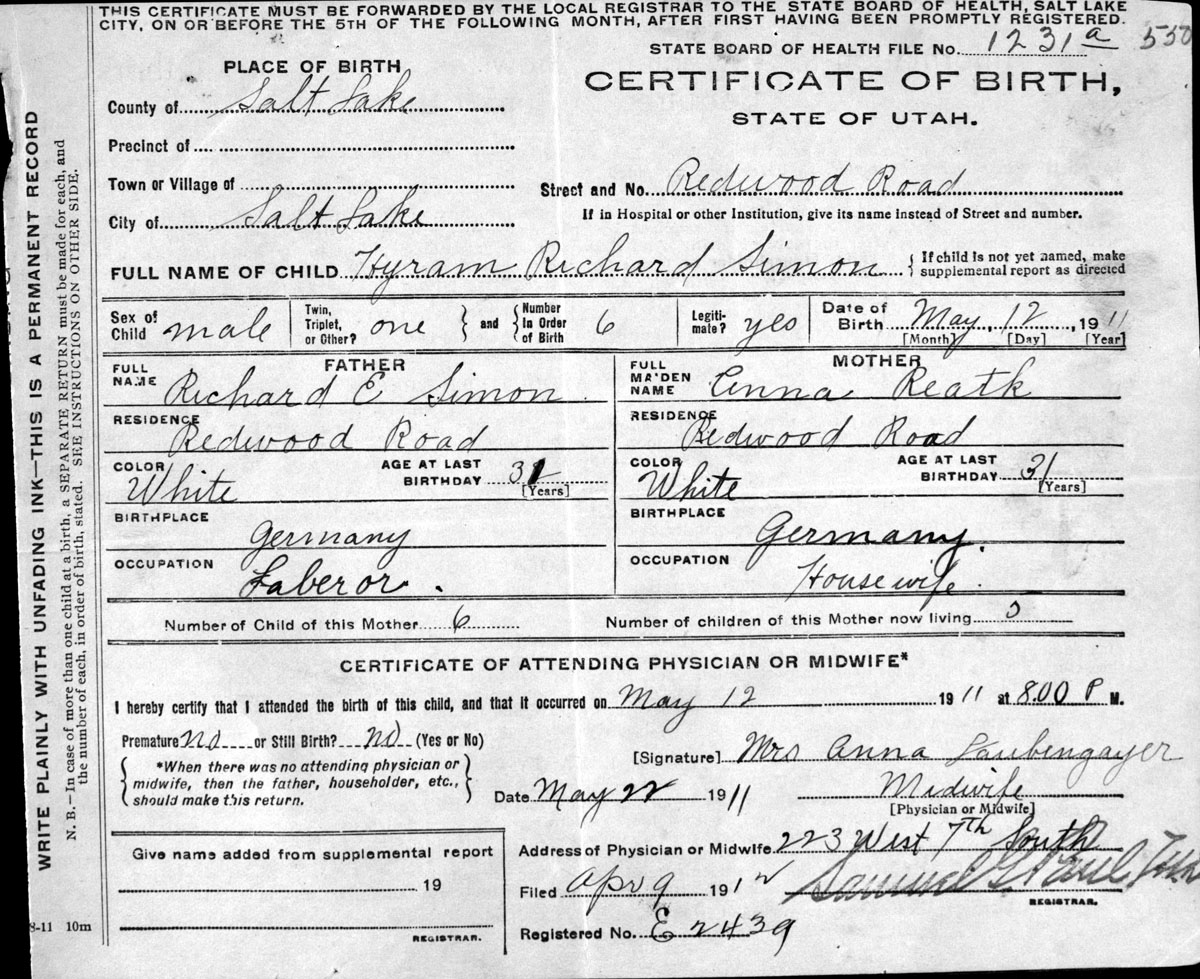 THIS CERTIFICATE MUST BE FORWARDED BY THE LOCAL REGISTRAR TO THE STATE BOARD OF HEALTH, SALT LAKE
CITY, ON OR BEFORE THE 5TH OF THE FOLLOWING MONTH, AFTER FIRST HAVING BEEN PROMPTLY REGISTERED.
STATE BOARD OF HEALTH FILE No. 1231a 550
PLACE OF BIRTH
CERTIFICATE OF BIRTH,
County of Salt Lake
STATE OF UTAH.
Precinct of
Town or Village of
Street and No. Redwood Road
City of Salt Lake
If in Hospital or other Institution, give its name instead of Street and number.
FULL NAME OF CHILD Hyram Richard Simon { If child is not yet named, make
supplemental report as directed
Sex of Child male Twin, Triplet, or Other? one } and { Number In Order of Birth 6 Legitimate? yes Date of Birth May, 12, 1911
[Month] [Day] [Year]
FATHER MOTHER
FULL NAME Richard E Simon FULL MAIDEN NAME Anna Reatk
RESIDENCE Redwood Road RESIDENCE Redwood Road
COLOR White AGE AT LAST BIRTHDAY [Years] COLOR White AGE AT LAST BIRTHDAY 31 [Years]
BIRTHPLACE Germany BIRTHPLACE Germany.
OCCUPATION Laberor. OCCUPATION Housewife.
Number of Child of this Mother 6 Number of children of this Mother now living
CERTIFICATE OF ATTENDING PHYSICIAN OR MIDWIFE*
I hereby certify that I attended the birth of this child, and that it occurred on May 12 1911 at 8.00 P M.
Premature no or Still Birth? no (Yes or No)
[Signature] Mrs Anna Laubengayer
{ *When there was no attending physician or
midwife, then the father, householder, etc.,
should make this return. }
Date May 22 1911 Midwife
[Physician or Midwife]
Address of Physician or Midwife 223 West 7th South
Give name added from supplemental report
19
REGISTRAR.
Filed Apr 9 1912 Samuel G Paul
REGISTRAR.
Registered No. E 2439
8-11 10m
WRITE PLAINLY WITH UNFADING INK—THIS IS A PERMANENT RECORD
N. B.—In case of more than one child at a birth, a SEPARATE RETURN must be made for each, and
the number of each, in order of birth, stated. SEE INSTRUCTIONS ON OTHER SIDE.